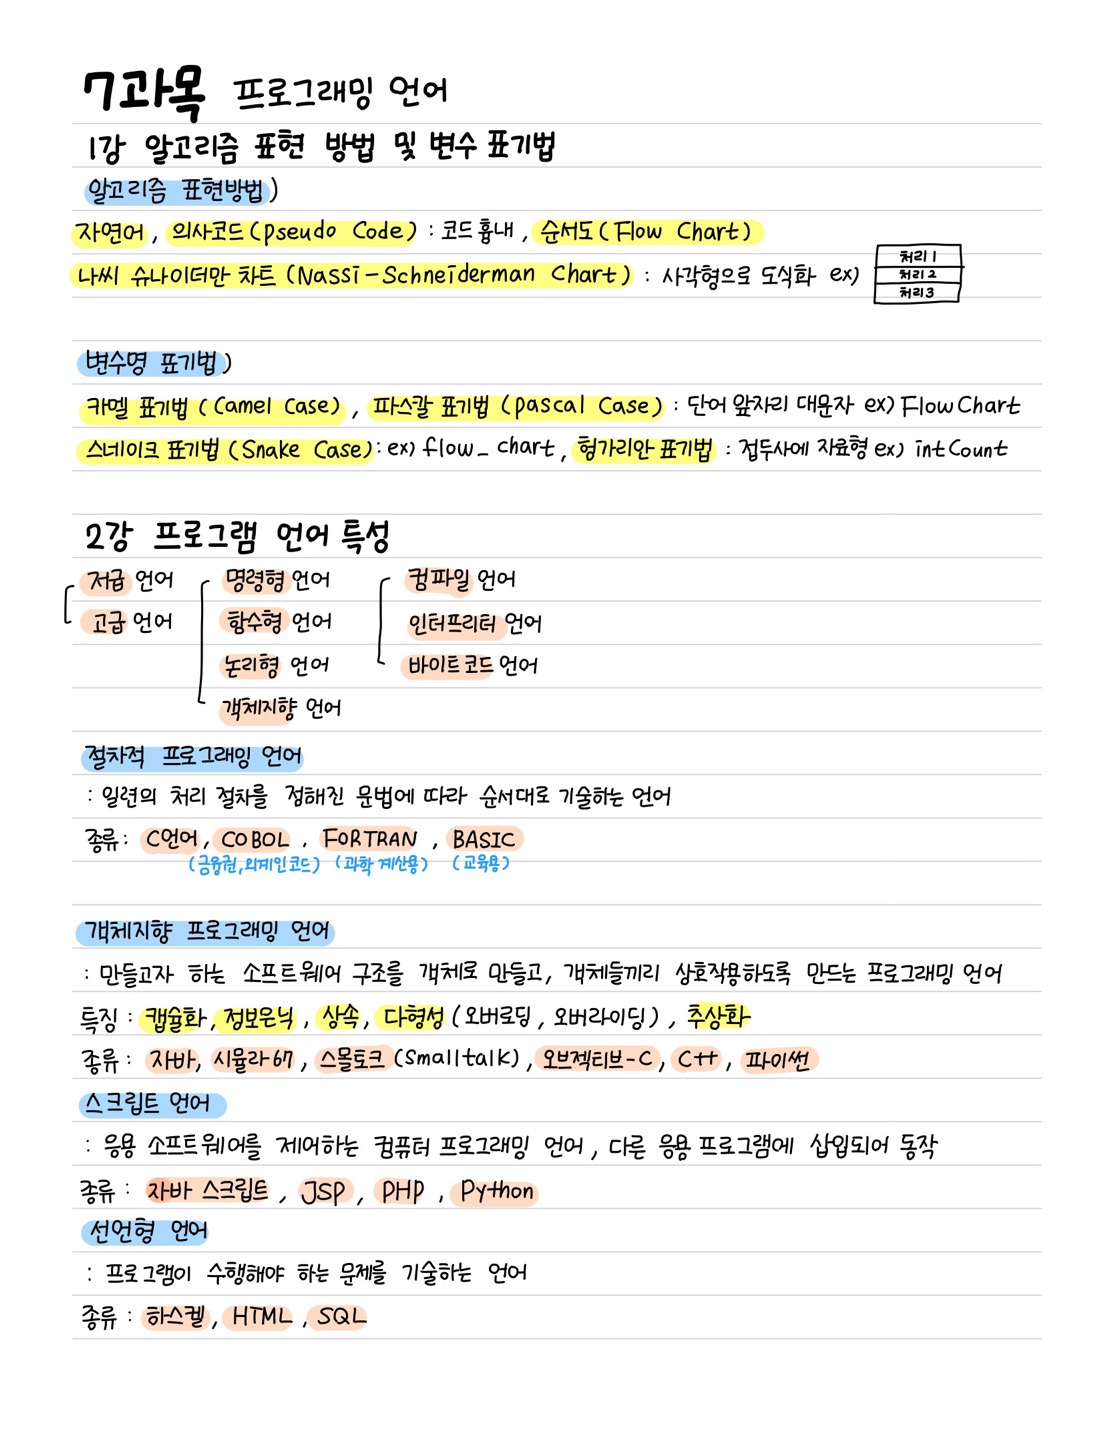 7과목 프로그래밍 언어
1강 알고리즘 표현 방법 및 변수 표기법
알고리즘 표현방법)
자연어, 의사코드(pseudo Code) : 코드 흉내, 순서도(Flow Chart)
나씨 슈나이더만 차트 (Nassi-Schneiderman Chart) : 사각형으로 도식화 ex)
처리 1
처리 2
처리 3
변수명 표기법)
카멜 표기법 (Camel Case), 파스칼 표기법 (pascal Case) : 단어 앞자리 대문자 ex) Flow Chart
스네이크 표기법 (Snake Case): ex) flow_ chart, 헝가리안 표기법 : 접두사에 자료형 ex) int Count
2강 프로그램 언어 특성
저급 언어 명령형 언어 컴파일 언어
고급 언어 함수형 언어 인터프리터 언어
논리형 언어 바이트 코드 언어
객체지향 언어
절차적 프로그래밍 언어
: 일련의 처리 절차를 정해진 문법에 따라 순서대로 기술하는 언어
종류: C언어, COBOL, FORTRAN, BASIC
(금융권, 외계인코드) (과학 계산용) (교육용)
객체지향 프로그래밍 언어
: 만들고자 하는 소프트웨어 구조를 객체로 만들고, 객체들끼리 상호작용하도록 만드는 프로그래밍 언어
특징 : 캡슐화, 정보은닉, 상속, 다형성 (오버로딩, 오버라이딩), 추상화
종류: 자바, 시뮬라 67, 스몰토크 (Smalltalk), 오브젝티브-C, C++, 파이썬
스크립트 언어
: 응용 소프트웨어를 제어하는 컴퓨터 프로그래밍 언어, 다른 응용 프로그램에 삽입되어 동작
종류 : 자바 스크립트, JSP, PHP, Python
선언형 언어
: 프로그램이 수행해야 하는 문제를 기술하는 언어
종류 : 하스켈, HTML, SQL